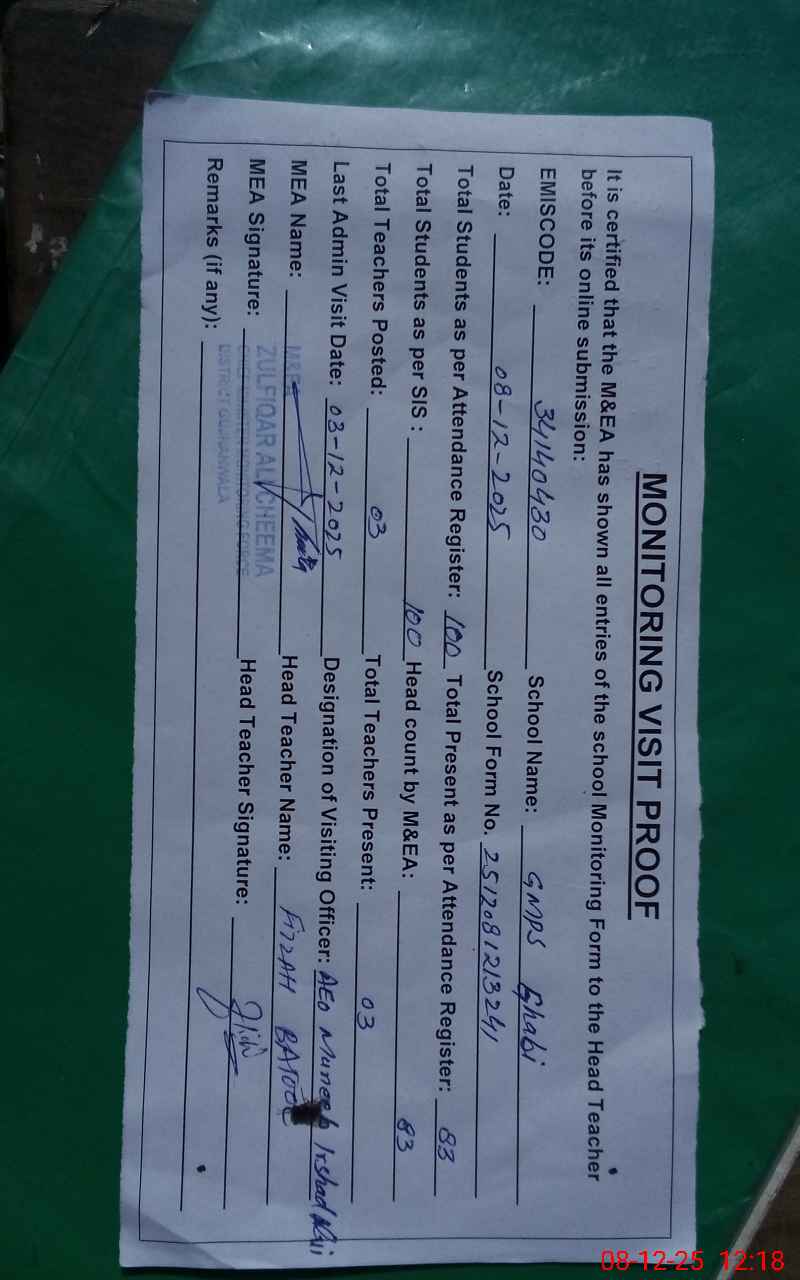 MONITORING VISIT PROOF
It is certified that the M&EA has shown all entries of the school Monitoring Form to the Head Teacher
before its online submission:
EMISCODE: 34140430 School Name: GMPS Ghabi
Date: 08-12-2025 School Form No. 2512081213241
Total Students as per Attendance Register: 100 Total Present as per Attendance Register: 83
Total Students as per SIS : 100 Head count by M&EA: 83
Total Teachers Posted: 03 Total Teachers Present: 03
Last Admin Visit Date: 03-12-2025 Designation of Visiting Officer: AEO Muneeb Irshad
MEA Name: Head Teacher Name: FIZZAH BATOOL
MEA Signature: Head Teacher Signature:
Remarks (if any):
M&EA
ZULFIQAR ALI CHEEMA
CHIEF MINISTER MONITORING FORCE
DISTRICT GUJRANWALA
08-12-25 12:18